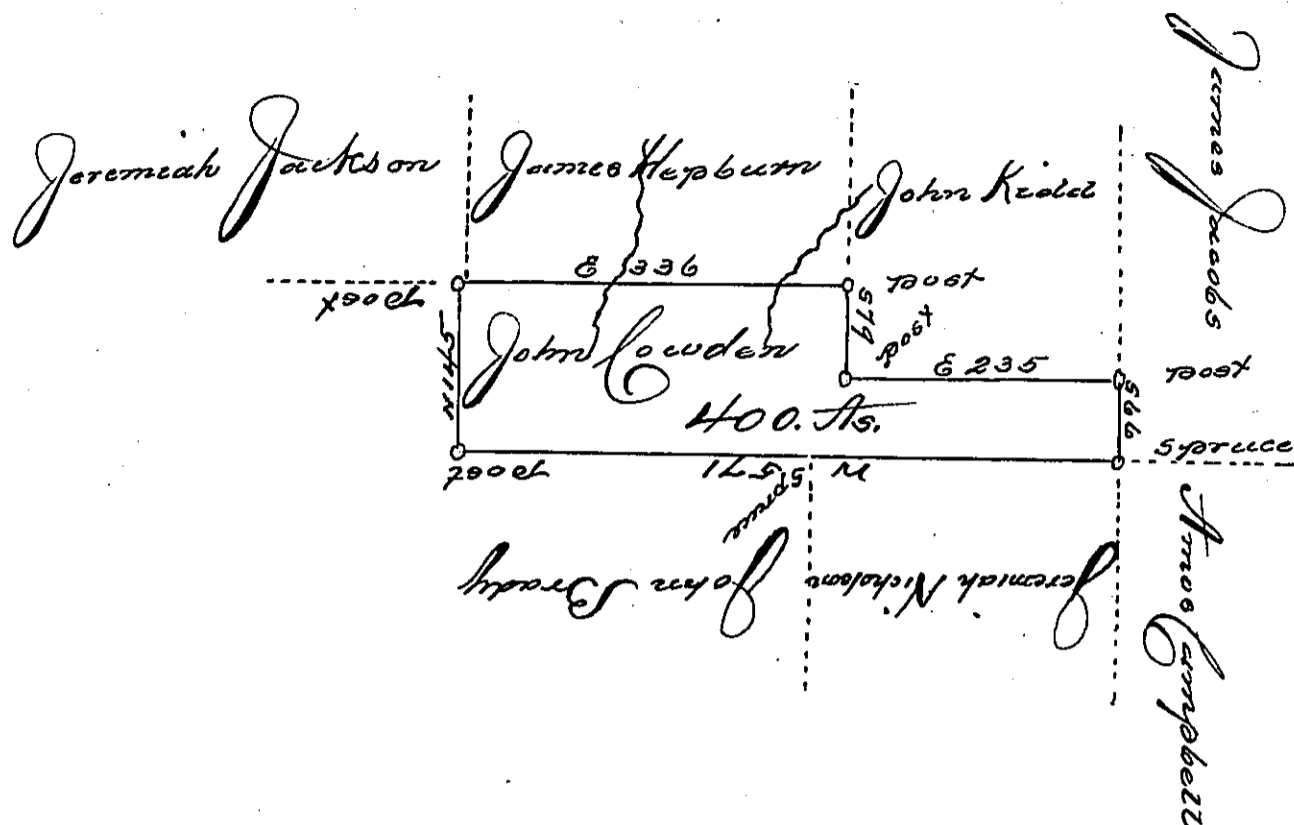 Jeremiah Jackson
James Hepburn
John Kidd
James Jacobs
E 336
Post
Post
S79
Post
N145
John Cowden
E 235
Post
400. As.
S66
Spruce
Post
W 571
Spruce
John Brady
Jeremiah Nicholson
Amos Campbell